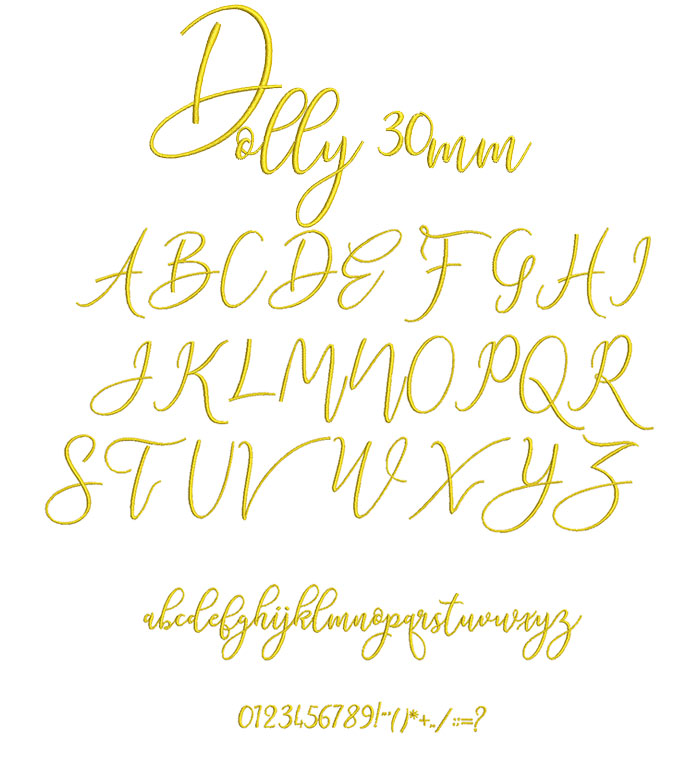 Dolly 30mm
ABCDEFGHI
JKLMNOPQR
STUVWXYZ
abcdefghijklmnopqrstuvwxyz
0123456789!"'()*+,./:;=?